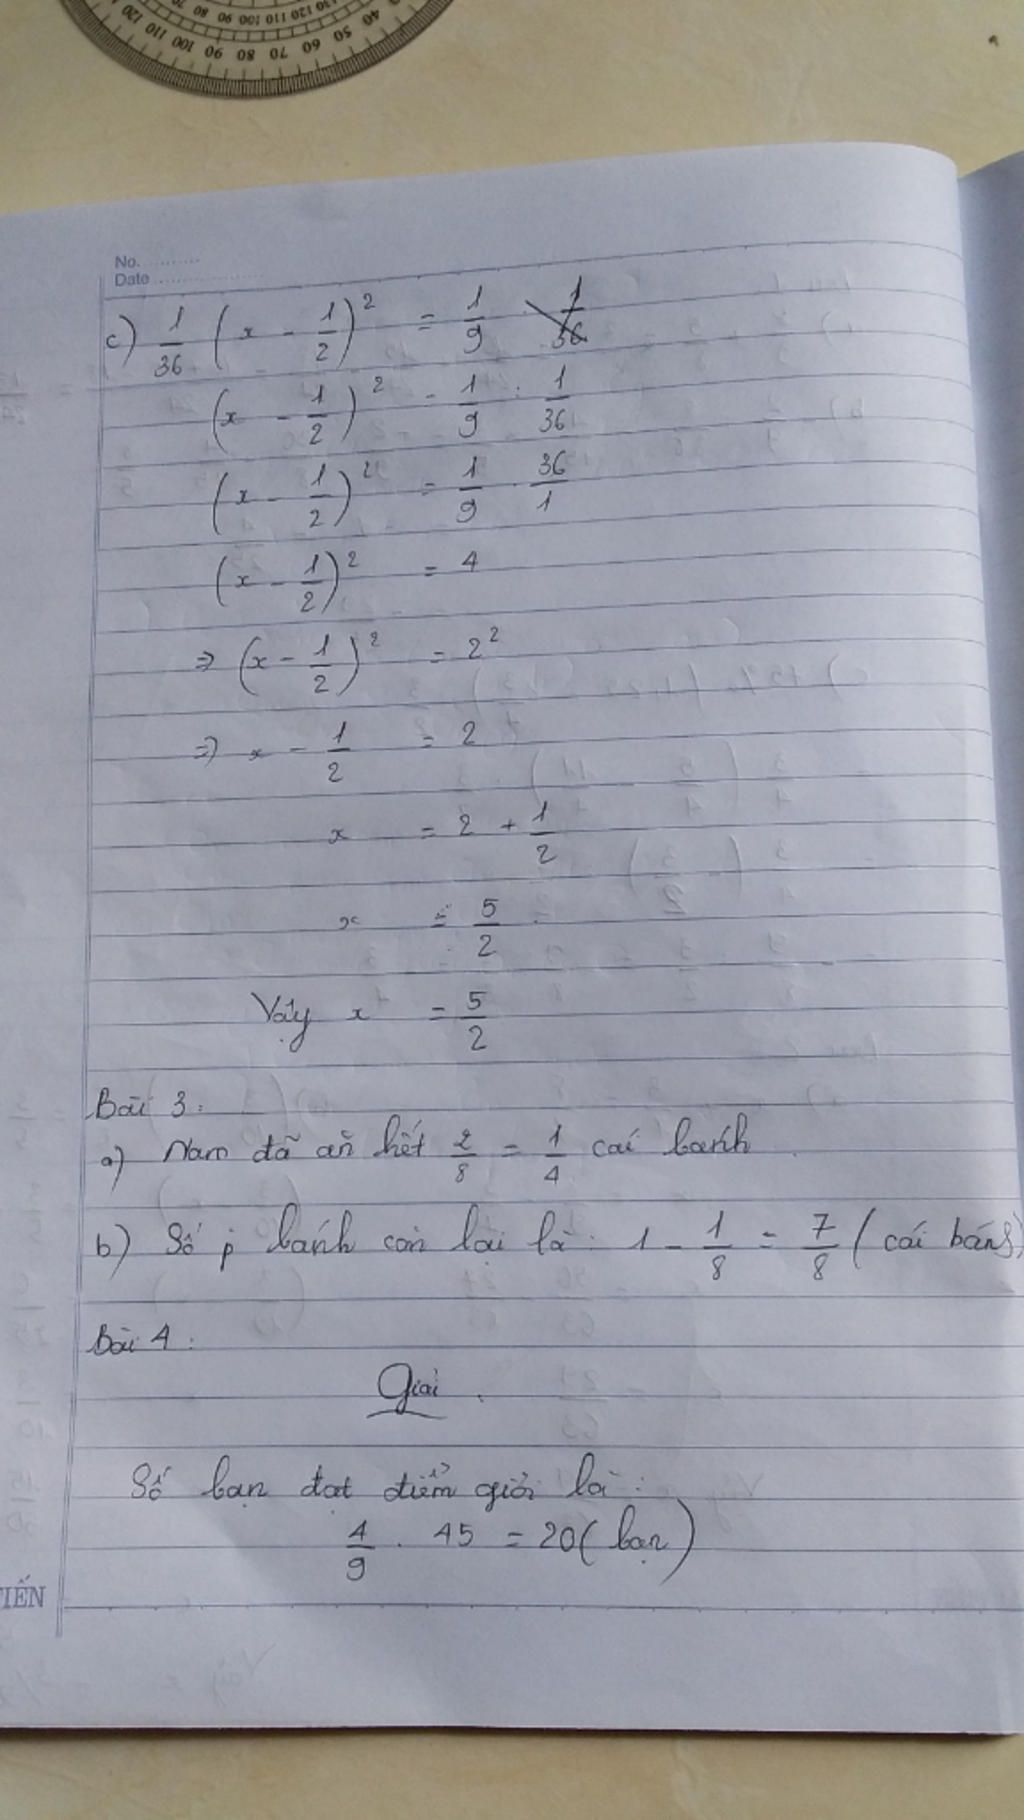 No. ..........
Date ....................
c) 1/36 (x - 1/2)² = 1/9
(x - 1/2)² = 1/9 : 1/36
(x - 1/2)² = 1/9 . 36/1
(x - 1/2)² = 4
=> (x - 1/2)² = 2²
=> x - 1/2 = 2
x = 2 + 1/2
x = 5/2
Vậy x = 5/2
Bài 3:
a) Nam đã ăn hết 2/8 = 1/4 cái bánh.
b) Số p bánh còn lại là: 1 - 1/8 = 7/8 (cái bánh)
Bài 4:
Giải.
Số bạn đạt điểm giỏi là:
4/9 . 45 = 20 (bạn)
TIẾN